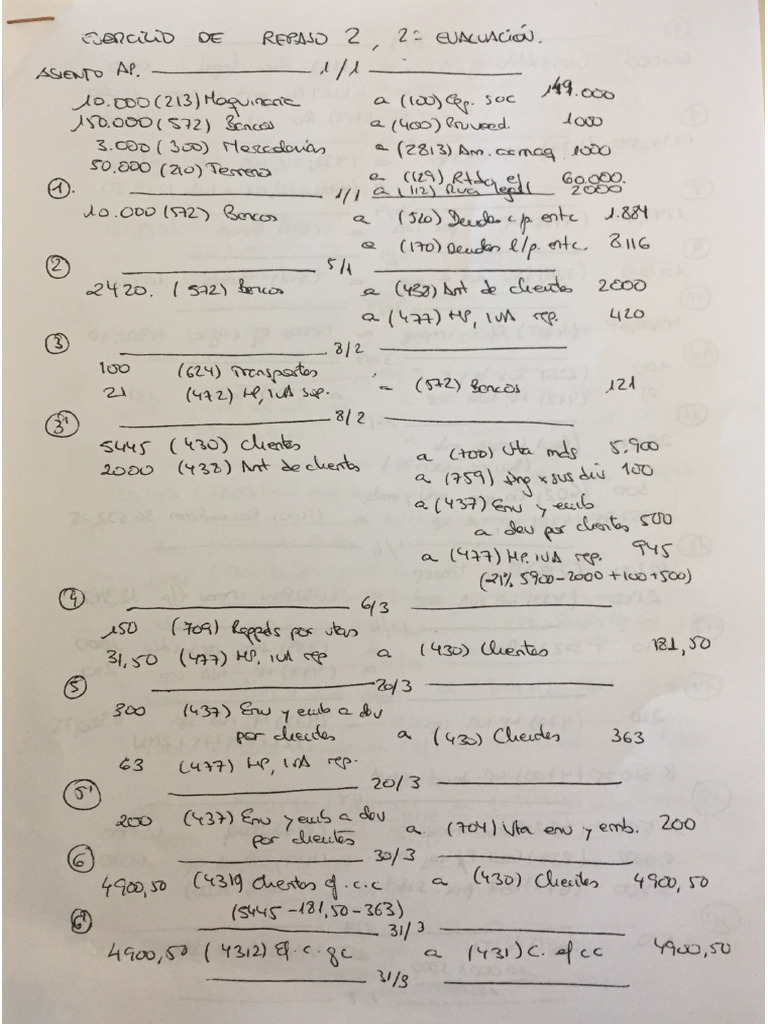 EJERCICIO DE REPASO 2, 2ª EVALUACIÓN.
ASIENTO AP. 1/1
10.000 (213) Maquinaria a (100) Cap. soc 149.000
150.000 (572) Bancos a (400) Proveed. 1000
3.000 (300) Mercaderías a (2813) Am. ac maq 1000
50.000 (210) Terreno a (129) Rtdo ej 60.000.
a (112) Rva legal 2000
1. 1/1
10.000 (572) Bancos a (520) Deudas c/p. entc 1.884
a (170) Deudas l/p. entc. 8.116
2 5/1
2420. (572) Bancos a (438) Ant de clientes 2000
a (477) HP, IVA rep. 420
3 8/2
100 (624) Transportes
21 (472) HP, IVA sop. a (572) Bancos 121
3' 8/2
5445 (430) Clientes a (700) Vta mds 5.900
2000 (438) Ant de clientes a (759) Ing x sus div 100
a (437) Env y emb
a dev por clientes 500
a (477) HP. IVA rep. 945
(21% 5900-2000+100+500)
4 6/3
150 (709) Rappels por vtas
31,50 (477) HP, IVA rep a (430) Clientes 181,50
5 20/3
300 (437) Env y emb a dev
por clientes a (430) Clientes 363
63 (477) HP, IVA rep.
5' 20/3
200 (437) Env y emb a dev
por clientes a (704) Vta env y emb. 200
6 30/3
4900,50 (4319 Clientes ef. c.c a (430) Clientes 4900,50
(5445-181,50-363)
6' 31/3
4900,50 (4312) Ef. c. gc a (431) C. ef cc 4900,50
31/3